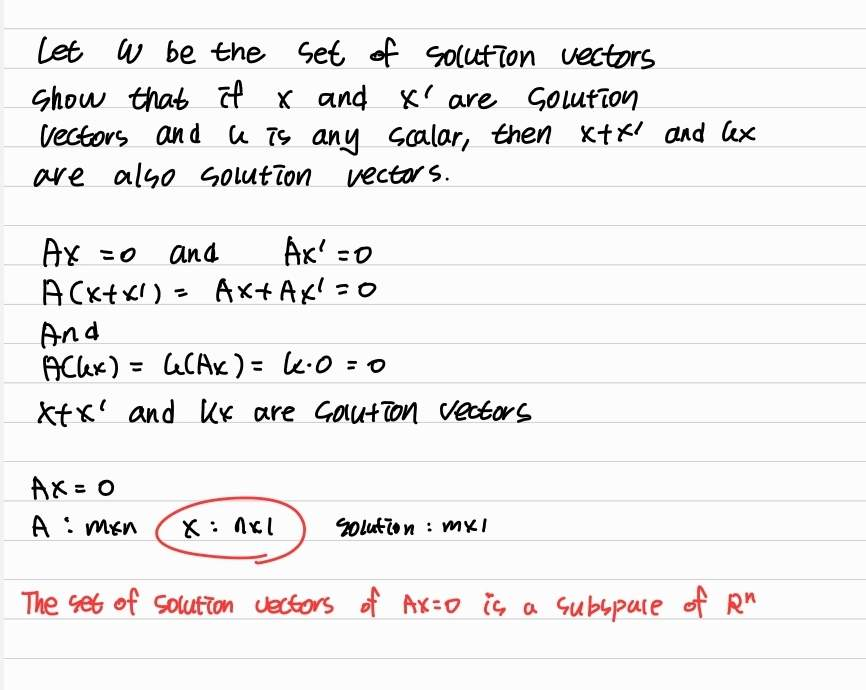 Let W be the set of solution vectors
show that if x and x' are solution
vectors and k is any scalar, then x+x' and kx
are also solution vectors.
Ax = 0 and Ax' = 0
A(x+x') = Ax + Ax' = 0
And
A(kx) = k(Ax) = k·0 = 0
x+x' and kx are solution vectors
Ax = 0
A : m×n x : n×1 solution : m×1
The set of solution vectors of Ax=0 is a subspace of Rⁿ